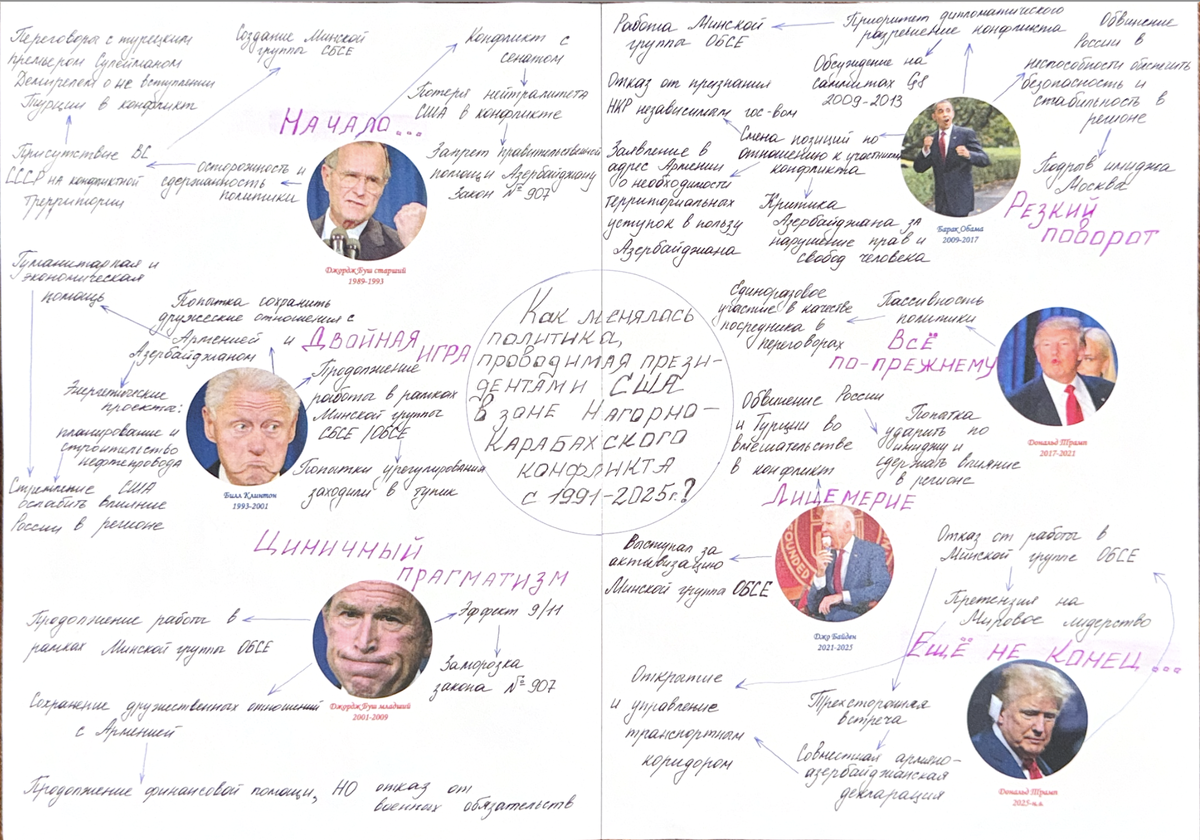 Переговоры с турецким
премьером Сулейманом
Демирелем о не вступлении
Турции в конфликт
Создание Минской
группы СБСЕ
Конфликт с
сенатом
Потеря нейтралитета
США в конфликте
Начало...
Присутствие ВС
СССР на конфликтной
территории
осторожность и
сдержанность
политики
Запрет правительственной
помощи Азербайджану
Закон №907
Джордж Буш старший
1989-1993
Гуманитарная и
экономическая
помощь
Попытка сохранить
дружеские отношения с
Арменией и
Азербайджаном
Двойная
игра
Энергетические
проекты:
планирование и
строительство
нефтепровода
Продолжение
работы в рамках
Минской группы
СБСЕ/ОБСЕ
Попытки урегулирования
заходили в тупик
Стремление США
ослабить влияние
России в регионе
Билл Клинтон
1993-2001
Циничный
прагматизм
Продолжение работы в
рамках Минской группы ОБСЕ
Эффект 9/11
Заморозка
закона №907
Сохранение дружественных отношений
с Арменией
Джордж Буш младший
2001-2009
Продолжение финансовой помощи, НО отказ от
военных обязательств
Как менялась
политика,
проводимая прези-
дентами США
в зоне Нагорно-
Карабахского
конфликта
с 1991-2025г.?
Работа Минской
группы ОБСЕ
Приоритет дипломатического
разрешение конфликта
Обвинение
России в
неспособности обеспечить
безопасность и
стабильность в
регионе
Обсуждение на
саммитах G8
2009-2013
Отказ от признания
НКР независимым гос-вом
Смена позиций по
отношению к участникам
конфликта
Заявление в
адрес Армении
о необходимости
территориальных
уступок в пользу
Азербайджана
Критика
Азербайджана за
нарушение прав и
свобод человека
Подрыв имиджа
Москва
Барак Обама
2009-2017
Резкий
поворот
Единоразовое
участие в качестве
посредника в
переговорах
Пассивность
политики
Всё
по-прежнему
Дональд Трамп
2017-2021
Обвинение России
и Турции во
вмешательстве
в конфликт
Попатка
ударить по
имиджу и
сдержать влияние
в регионе
Лицемерие
Выступал за
активизацию
Минской группа ОБСЕ
Джо Байден
2021-2025
Отказ от работы в
Минской группе ОБСЕ
Претензия на
Мировое лидерство
Ещё не конец...
Открытие
и управление
транспортным
коридором
Трехсторонняя
встреча
Совместная армяно-
азербайджанская
декларация
Дональд Трамп
2025-н.в.
FOUNDED